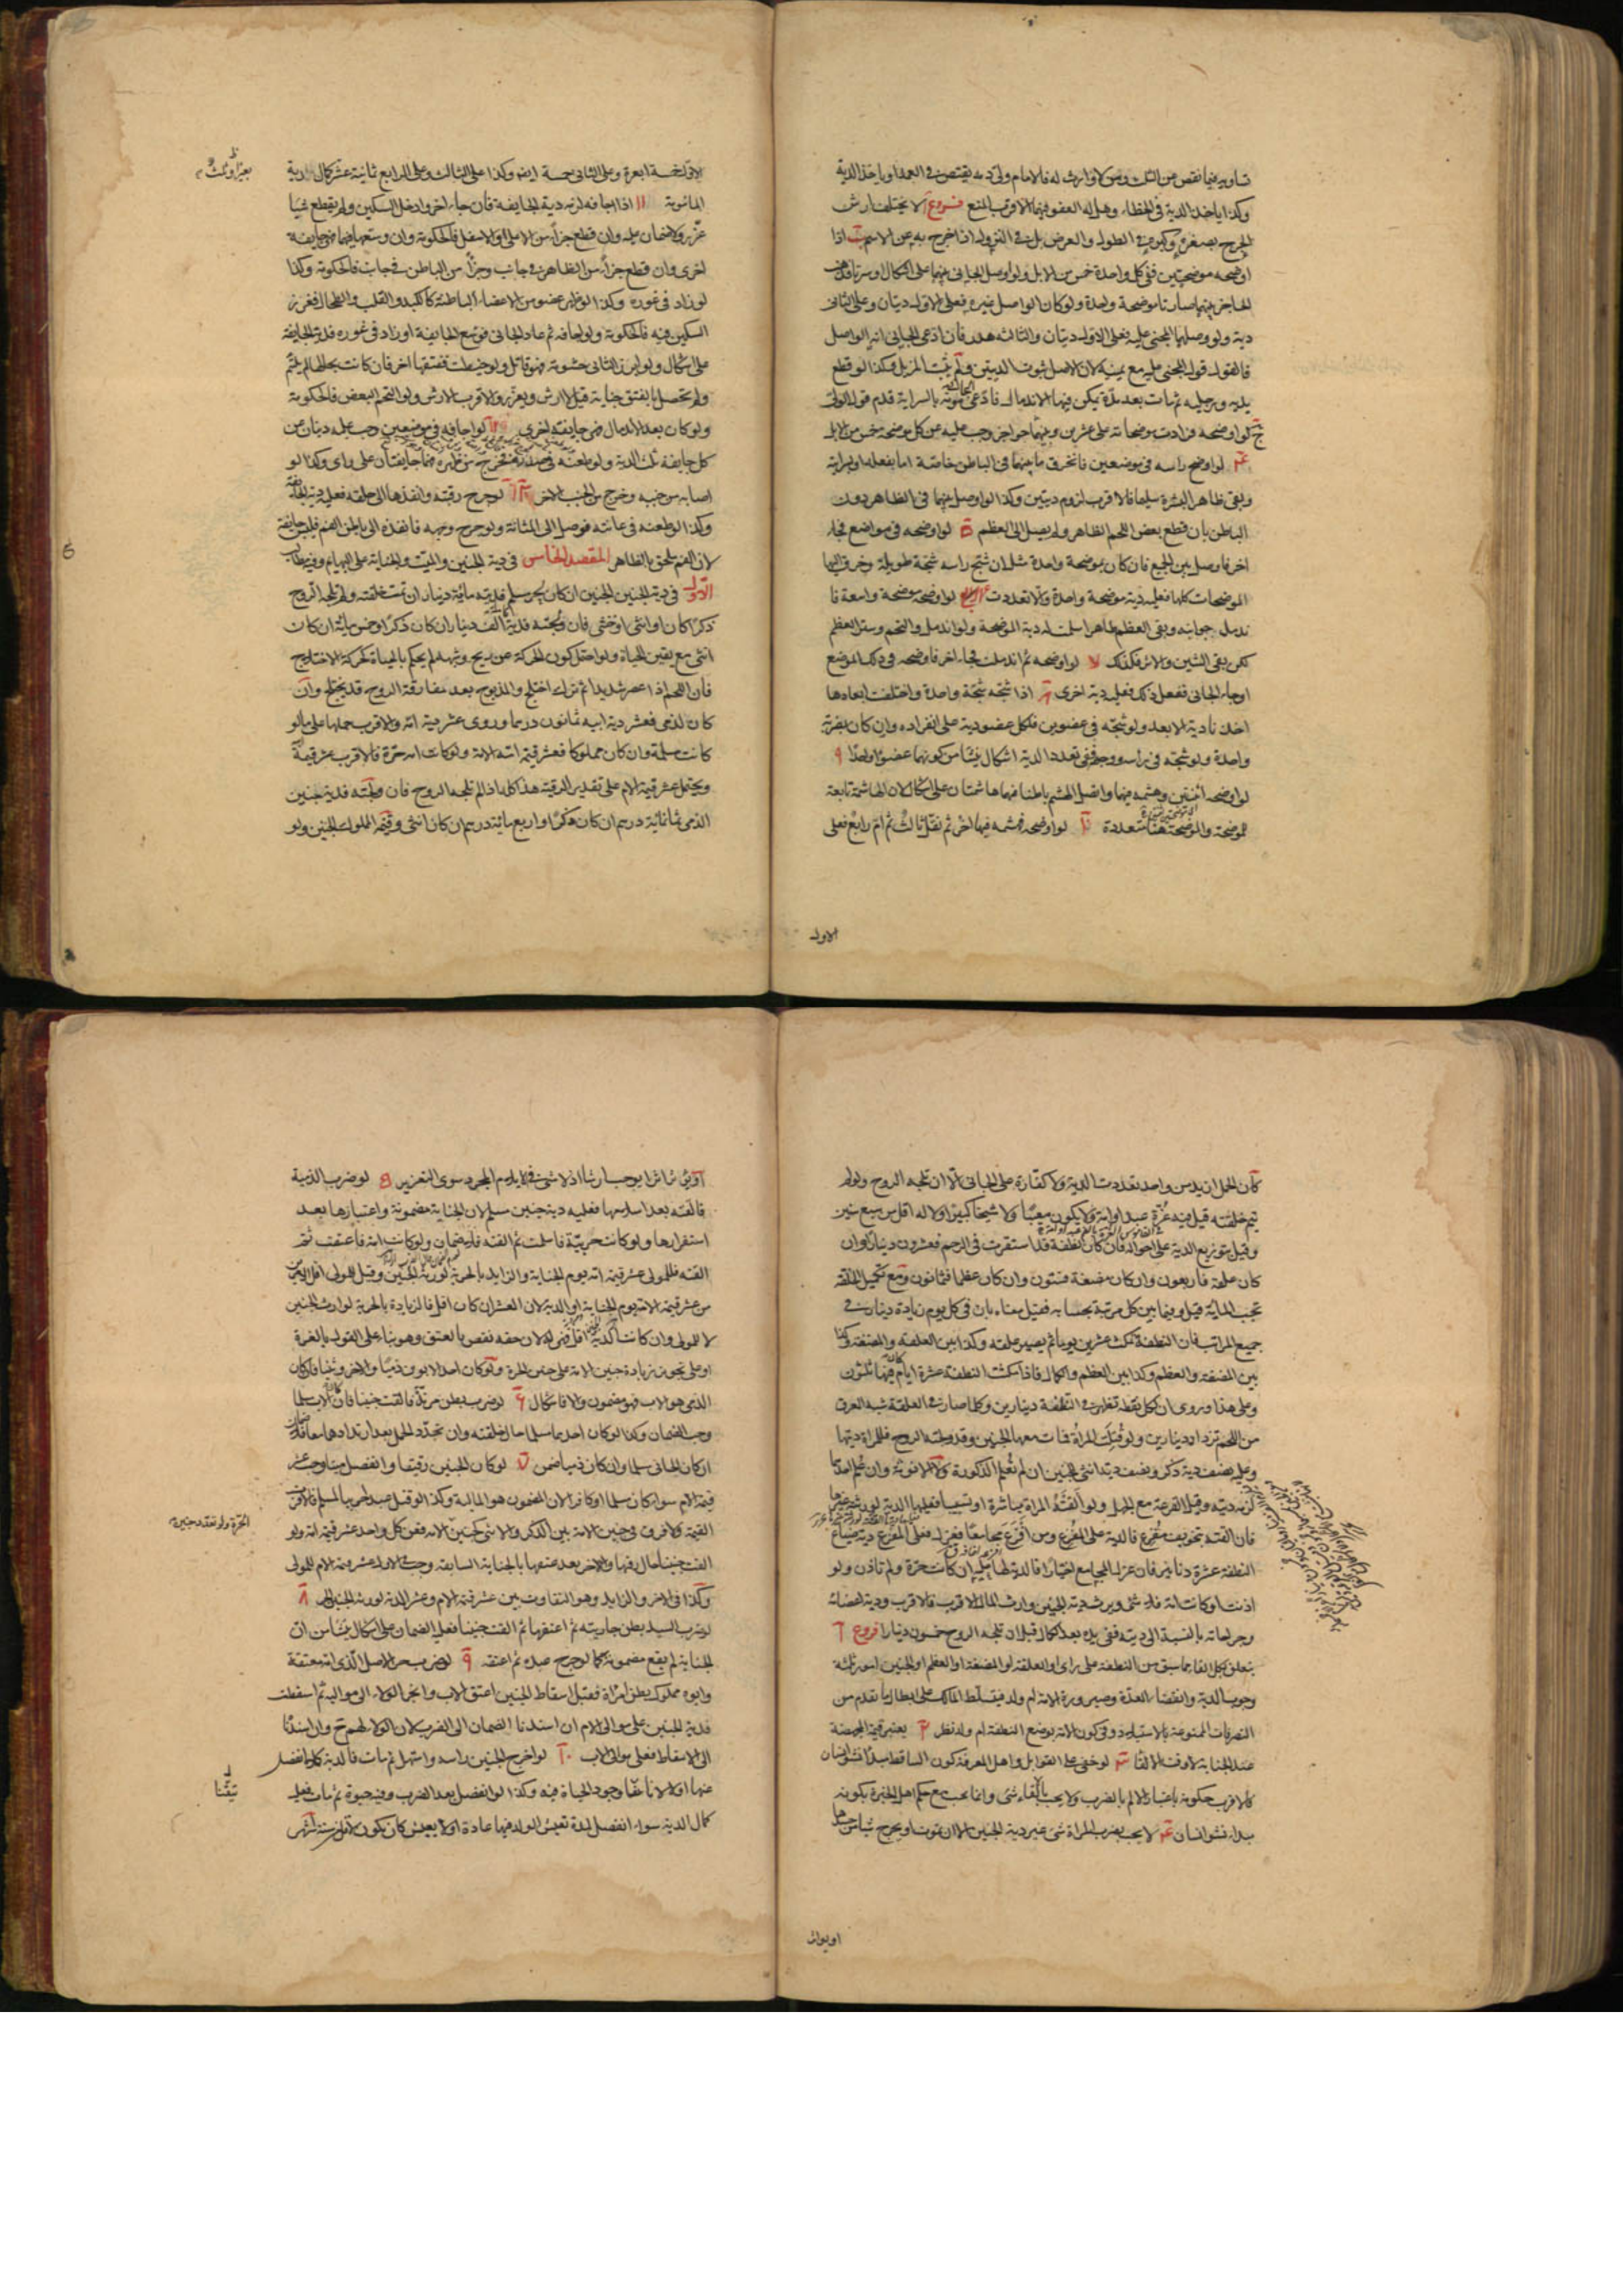 تساويه فيما نقص عن الثلث ومن لا وارث له فالامام ولى دمه يقتص فى العمد او ياخذ الدية
وكذا ياخذ الدية فى الخطاء وهل له العفو فيهما الاقرب المنع فروع آ لا يختلف ارش
الجرح بصغره وكبره فى الطول والعرض بل فى النزول اذا خرج به عن الاسم ب اذا
اوضحه موضحتين ففى كل واحدة خمس من الابل ولو اوصل الجانى بينهما على اشكال او سرتا فذهب
الحاجز بينهما صارتا موضحة واحدة ولو كان الواصل غيره فعلى الاول ديتان وعلى الثانى
دية ولو وصلهما المجنى عليه فعلى الاول ديتان والثالثة هدر فان ادعى الجانى انه الواصل
فالقول قول المجنى عليه مع يمينه لان الاصل ثبوت الديتين ولم يثبت المزيل وكذا لو قطع
يديه ورجليه ثم مات بعد مدة يمكن فيها الاندمال فادعى الجانى موته بالسراية قدم قول الولى
ج لو اوضحه فزادت موضحاته على عشرين وبينهما حواجز وجب عليه عن كل موضحة خمس من الابل
لو اوضح راسه فى موضعين فانخرق ما بينهما فى الباطن خاصة اما بفعله او بسراية
وبقى ظاهر البشرة سليما فالاقرب لزوم ديتين وكذا لو اوصل بينهما فى الظاهر دون
الباطن بان قطع بعض اللحم الظاهر ولم يصل الى العظم ه لو اوضحه فى مواضع فجاء
اخر فاوصل بين الجميع فان كان بموضحة واحدة مثل ان شج راسه شجة طويلة وخرق اليها
الموضحات كلها فعليه دية موضحة واحدة والا تعددت لو اوضحه موضحة واسعة فا
ندمل جوانبه وبقى العظم ظاهرا سلمت له دية الموضحة ولو اندمل والتحم وستر العظم
لكن بقى الشين والاثر فكذلك لو اوضحه ثم اندملت فجاء اخر فاوضحه فى ذلك الموضع
او جاء الجانى ففعل ذلك فعليه دية اخرى اذا شجه شجة واحدة واختلفت ابعادها
اخذنا دية الابعد ولو شجه فى عضوين فلكل عضو دية على انفراده وان كان بضربة
واحدة ولو شجه فى راسه ووجهه ففى تعدد الدية اشكال ينشأ من كونهما عضوا واحدا ٩
لو اوضحه اثنتين وهشمه فيهما واتصل الهشم باطنا فهما هاشمتان على اشكال لان الهاشمة تابعة
للموضحة والموضحة هنا متعددة لو اوضحه فهشمه فيها اخر ثم نقل ثالث ثم ام رابع فعلى
الاول
الاول خمسة ابعرة وعلى الثانى خمسة ايضا وكذا على الثالث وعلى الرابع ثمانية عشر كمال دية
المامومة ١١ اذا اجافه لزمه دية الجايفة فان جاء اخر وادخل السكين ولم يقطع شيا
عزر ولا ضمان عليه وان قطع جزأ من الاعلى او الاسفل فالحكومة وان وسعها فيهما فهى جايفة
اخرى وان قطع جزأ من الظاهر فى جانب وجزأ من الباطن فى جانب فالحكومة وكذا
لو زاد فى غوره وكذا لو ظهر عضو من الاعضاء الباطنة كالكبد والقلب والطحال فغرز
السكين فيه فالحكومة ولو اجافه ثم عاد الجانى فوسع الجايفة او زاد فى غوره فدية الجايفة
على اشكال ولو ابرز الثانى حشوته فهو قاتل ولو خيطت ففتقها اخر فان كانت بحالها لم يلتئم
ولم تحصل بالفتق جناية قيل لا ارش ويعزر والاقرب الارش ولو التحم البعض فالحكومة
ولو كان بعد الاندمال فهى جايفة اخرى لو اجافه فى موضعين وجب عليه ديتان عن
كل جايفة ثلث الدية ولو طعنه فى صدره فخرج من ظهره فهما جايفتان على راى وكذا لو
اصابه من جنبه وخرج من الجنب الاخر لو جرح رقبته وانفذها الى حلقه فعليه دية الجايفة
وكذا لو طعنه فى عانته فوصل الى المثانة ولو جرح وجهه فانفذه الى باطن الفم فليس جايفة
لان الفم ملحق بالظاهر المقصد الخامس فى دية الجنين والميت والجناية على البهايم وفيه مطالب
الاول فى دية الجنين الجنين ان كان لحر مسلم فديته مائة دينار ان تمت خلقته ولم تلجه الروح
ذكرا كان او انثى او خنثى فان ولجته فدية الف دينار ان كان ذكرا وخمس مائة ان كان
انثى مع يقين الحياة ولو احتمل كون الحركة عن ريح وشبهه لم يحكم بالحياة كحركة الاختلاج
فان اللحم اذا عصر شديدا ثم ترك اختلج والمذبوح بعد مفارقة الروح قد يختلج وان
كان لذمى فعشر دية ابيه ثمانون درهما وروى عشر دية امه والاقرب حملها على ما لو
كانت مسلمة وان كان مملوكا فعشر قيمة امه الامة ولو كانت امه حرة فالاقرب عشر قيمة
ويحتمل عشر قيمة الام على تقدير الرقية هذا كله اذا لم تلجه الروح فان ولجته فدية جنين
الذمى ثمانمائة درهم ان كان ذكرا واربع مائة درهم ان كان انثى وقيمة المملوك الجنين ولو
بعيرا وثلث
كان الحمل ازيد من واحد تعددت الدية ولا كفارة على الجانى الا ان تلجه الروح ولو لم
يتم خلقته قيل فيه غرة عبد او امة ولا يكون معيبا ولا شيخا كبيرا ولا له اقل من سبع سنين
وقيل بتوزيع الدية على احواله فان كان نطفة قد استقرت فى الرحم فعشرون دينارا وان
كان علقة فاربعون وان كان مضغة فستون وان كان عظما فثمانون ومع تكميل الخلقة
تجب المائة قيل وفيما بين كل مرتبة بحسابه فقيل معناه بان فى كل يوم زيادة دينار فى
جميع المراتب فان النطفة تمكث عشرين يوما ثم يصير علقة وكذا بين العلقة والمضغة وكذا
بين المضغة والعظم وكذا بين العظم والكمال فاذا مكثت النطفة عشرة ايام كان فيها ثلثون
وعلى هذا وروى ان لكل نقطة تظهر فى النطفة دينارين وكلما صار فى العلقة شبه العرق
من اللحم تزداد دينارين ولو قتلت المراة فمات معها الجنين وقد ولجته الروح فللمراة ديتها
وعليه نصف دية ذكر ونصف دية انثى للجنين ان لم تعلم الذكورة ولا الانوثة وان علم احدهما
لزمه ديته وقيل القرعة مع الجهل ولو القته المراة مباشرة او تسبيبا فعليها الدية لورثته غيرها
فان القته بتخويف مفزع فالدية على المفزع ومن افزع مجامعا فعزل فعلى المفزع دية ضياع
النطفة عشرة دنانير فان عزل المجامع اختيارا فالدية لها عليه ان كانت حرة ولم تاذن ولو
اذنت او كانت امة فلا شئ ويرث دية الجنين وارث المال الاقرب فالاقرب ودية اعضائه
وجراحاته بالنسبة الى ديته ففى يده بعد الكمال قبل ان تلجه الروح خمسون دينارا فروع آ
يتعلق بكل القاء ما سبق من النطفة على راى او العلقة او المضغة او العظم او الجنين امور ثلثة
وجوب الدية وانقضاء العدة وصيرورة الامة ام ولد فيتسلط المالك على ابطال ما تقدم من
التصرفات الممنوعة بالاستيلاد وفى كون الامة بوضع النطفة ام ولد نظر يعتبر قيمة المجهضة
عند الجناية لا وقت الالقاء لو خفى على القوابل واهل المعرفة كون الساقط مبدأ نشو انسان
فالاقرب حكومة باعتبار الالم بالضرب ولا يجب بالقاء شئ وانما يجب مع حكم اهل الخبرة بكونه
مبداء نشو انسان لا يجب بضرب المراة شئ غير دية الجنين الا ان تموت او يجرح شيا من جسدها
او يواثر
او يؤثر اثرا يوجب ارشا اذ لا شئ فى الايلام المجرد سوى التعزير لو ضرب الذمية
فالقته بعد اسلامها فعليه دية جنين مسلم لان الجناية مضمونة واعتبارها بعد
استقرارها ولو كانت حربية فاسلمت ثم القته فلا ضمان ولو كانت امة فاعتقت ثم
القته فللمولى عشر قيمة امه يوم الجناية والزايد بالحرية لورثة الجنين وقيل للمولى اقل الامرين
من عشر قيمة الامة يوم الجناية او الدية لان العشر ان كان اقل فالزيادة بالحرية لوارث الجنين
لا للمولى وان كانت الدية اقل فهى له لان حقه نقص بالعتق وهو بناء على القول بالغرة
او على تجويز زيادة جنين الامة على جنين الحرة ولو كان احد الابوين ذميا والاخر وثنيا فان كان
الذمى هو الاب فهو مضمون والا فاشكال لو ضرب بطن مرتدة فالقت جنينا فان كان الاب مسلما
وجب الضمان وكذا لو كان احدهما مسلما حال خلقته وان تجدد الحمل بعد ارتدادهما معا فلا ضمان
ان كان الجانى مسلما وان كان ذميا ضمن لو كان الجنين رقيقا وانفصل ميتا وجب عشر
قيمة الام سواء كان مسلما او كافرا لان المضمون هو المالية وكذا لو قتل عبد لحربى المسلم فالاقرب
القيمة ولا فرق فى جنين الامة بين الذكر والانثى كجنين الامة فعن كل واحد عشر قيمة امه ولو
القت جنينا حال رقها والاخر بعد عتقها بالجناية السابقة وجب فى الاول عشر قيمة الام للمولى
وكذا فى الاخر والزايد وهو التفاوت بين عشر قيمة الام وعشر الدية لورثة الجنين الحر
لو ضرب السيد بطن جاريته ثم اعتقها ثم القت جنينا فعليه الضمان على اشكال ينشأ من ان
الجناية لم يقع مضمونة كما لو جرح عبده ثم اعتقه ٩ لو ضرب حر الاصل الذى امه معتقة
وابوه مملوك بطن امراة فقبل اسقاط الجنين اعتق الاب وانجر الولاء الى مواليه ثم اسقطت
فدية الجنين على موالى الام ان اسندنا الضمان الى الضرب لان الولاء لهم ح وان اسندنا
الى الاسقاط فعلى موالى الاب لو اخرج الجنين راسه واستهل ثم مات فالدية كاملة انفصل
عنها او لا لانا تيقنا وجود الحياة فيه وكذا لو انفصل بعد الضرب وفيه حيوة ثم مات فعليه
كمال الدية سواء انفصل لمدة تعيش الولد فيها عادة او لا يعيش كان يكون لاقل من ستة اشهر
الحرة ولو تعدد جنين
تيقنا